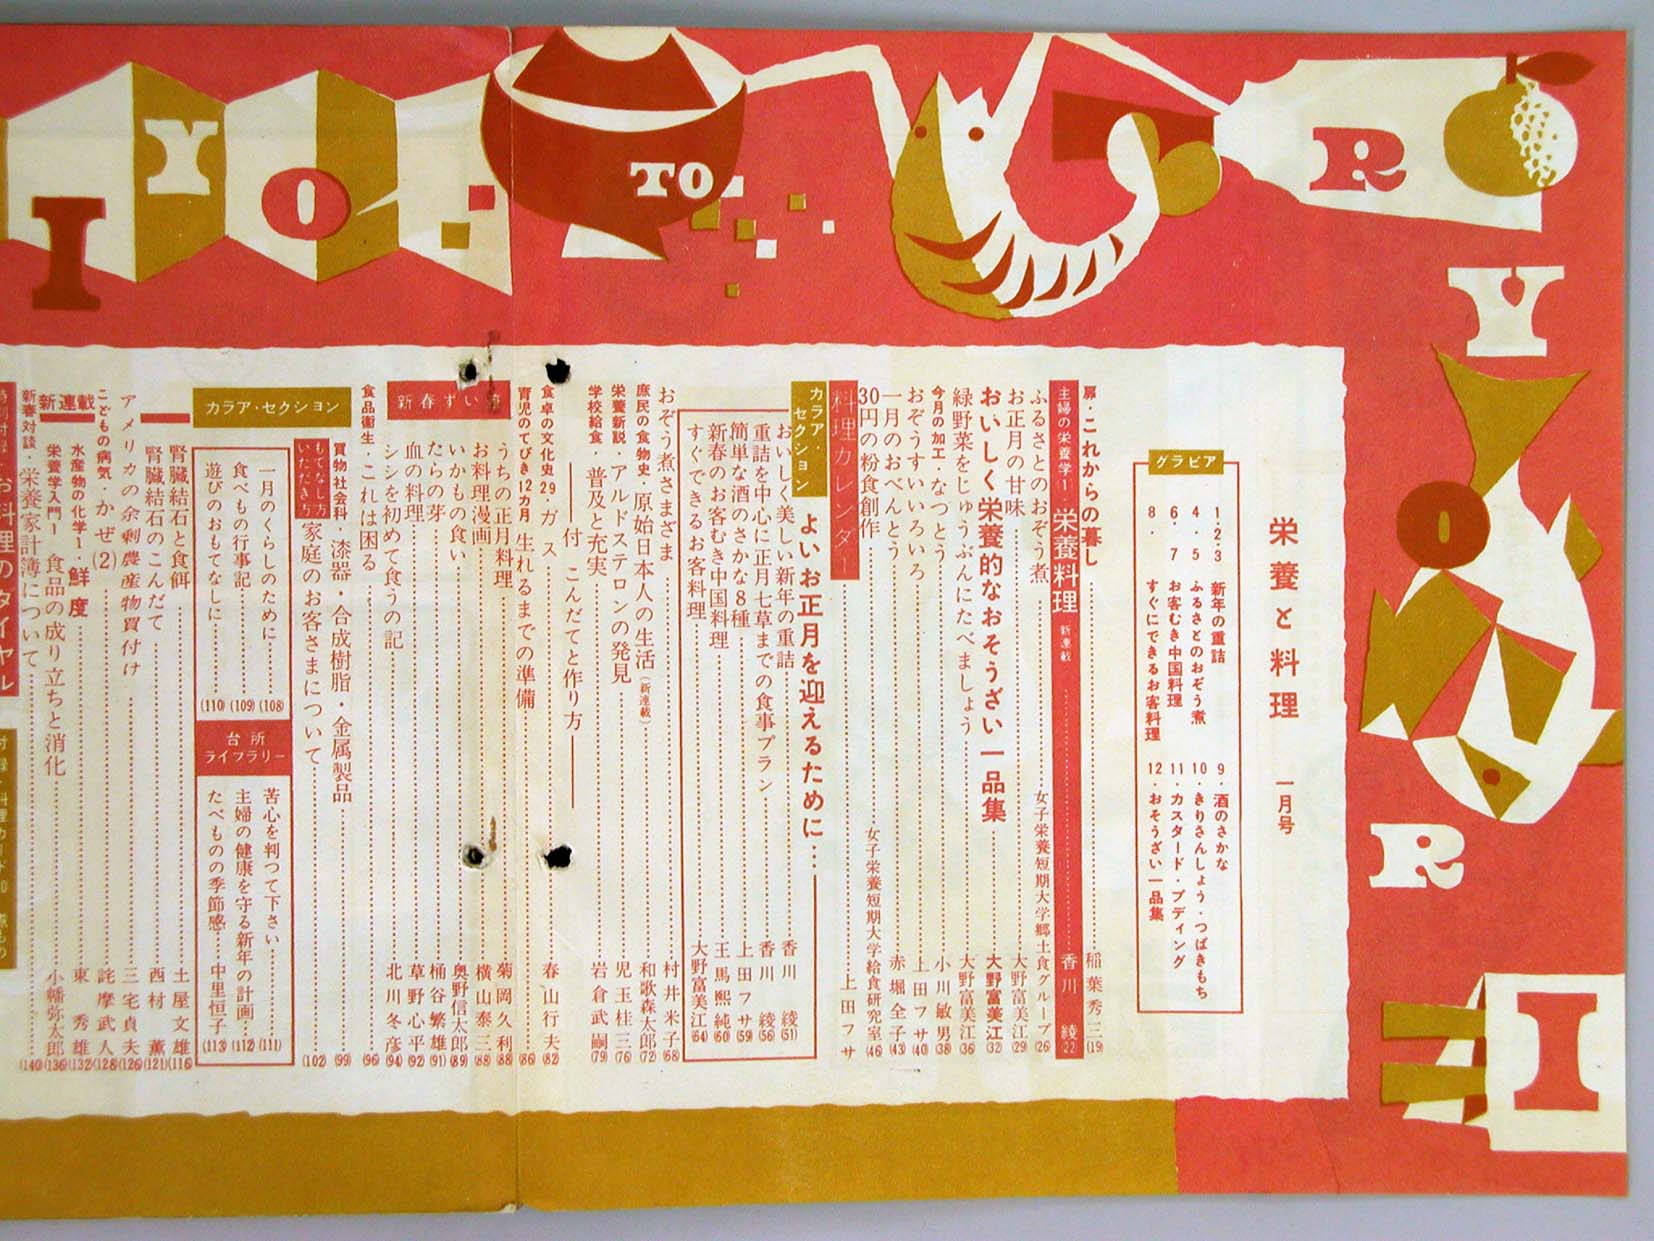 I
YO
TO
R
Y
O
R
I
栄養と料理 一月号
グラビア
1・2・3 新年の重詰
4・5 ふるさとのおぞう煮
6・7 お客むき中国料理
8・ すぐにできるお客料理
9・酒のさかな
10・きりさんしょう・つばきもち
11・カスタード・プディング
12・おそうざい一品集
扉・これからの暮し 稲葉秀三 (19)
主婦の栄養学1・栄養料理 新連載 香川 綾 (22)
ふるさとのおぞう煮 女子栄養短期大学郷土食グループ (26)
お正月の甘味 大野富美江 (29)
おいしく栄養的なおそうざい一品集 大野富美江 (32)
緑野菜をじゅうぶんにたべましょう 大野富美江 (36)
今月の加工・なづとう 小川敏男 (38)
おぞうすいいろいろ 上田フサ (40)
一月のおべんとう 赤堀全子 (43)
30円の粉食創作 女子栄養短期大学給食研究室 (46)
料理カレンダー 上田フサ
カラア・セクション
よいお正月を迎えるために…
おいしく美しい新年の重詰 香川 綾 (51)
重詰を中心に正月七草までの食事プラン 香川 綾 (56)
簡単な酒のさかな8種 上田フサ (59)
新春のお客むき中国料理 王馬熙純 (60)
すぐできるお客料理 大野富美江 (64)
おぞう煮さまざま 村井米子 (68)
庶民の食物史・原始日本人の生活(新連載) 和歌森太郎 (72)
栄養新説・アルドステロンの発見 児玉桂三 (76)
学校給食・普及と充実 岩倉武嗣 (79)
――付 こんだてと作り方――
食卓の文化史29・ガス 春山行夫 (82)
育児のてびき12カ月 生れるまでの準備 (86)
新春ずい筆
うちの正月料理 菊岡久利 (88)
お料理漫画 横山泰三 (88)
いかもの食い 奥野信太郎 (89)
たらの芽 桶谷繁雄 (91)
血の料理 草野心平 (92)
シシを初めて食うの記 北川冬彦 (94)
食品衛生・これは困る (96)
買物社会科・漆器・合成樹脂・金属製品 (99)
もてなし方いただき方 家庭のお客さまについて (102)
カラア・セクション
一月のくらしのために (108)
食べもの行事記 (109)
遊びのおもてなしに (110)
台所ライブラリー
苦心を判つて下さい (111)
主婦の健康を守る新年の計画 (112)
たべものの季節感 中里恒子 (113)
腎臓結石と食餌 土屋文雄 (116)
腎臓結石のこんだて 西村 薫 (121)
アメリカの余剰農産物買付け 三宅貞夫 (126)
こどもの病気・かぜ(2) 詫摩武人 (128)
新連載
水産物の化学1・鮮度 東 秀雄 (132)
栄養学入門1 食品の成り立ちと消化 小幡弥太郎 (136)
新春対談・栄養家計簿について (140)
特別付録・お料理のダイヤル